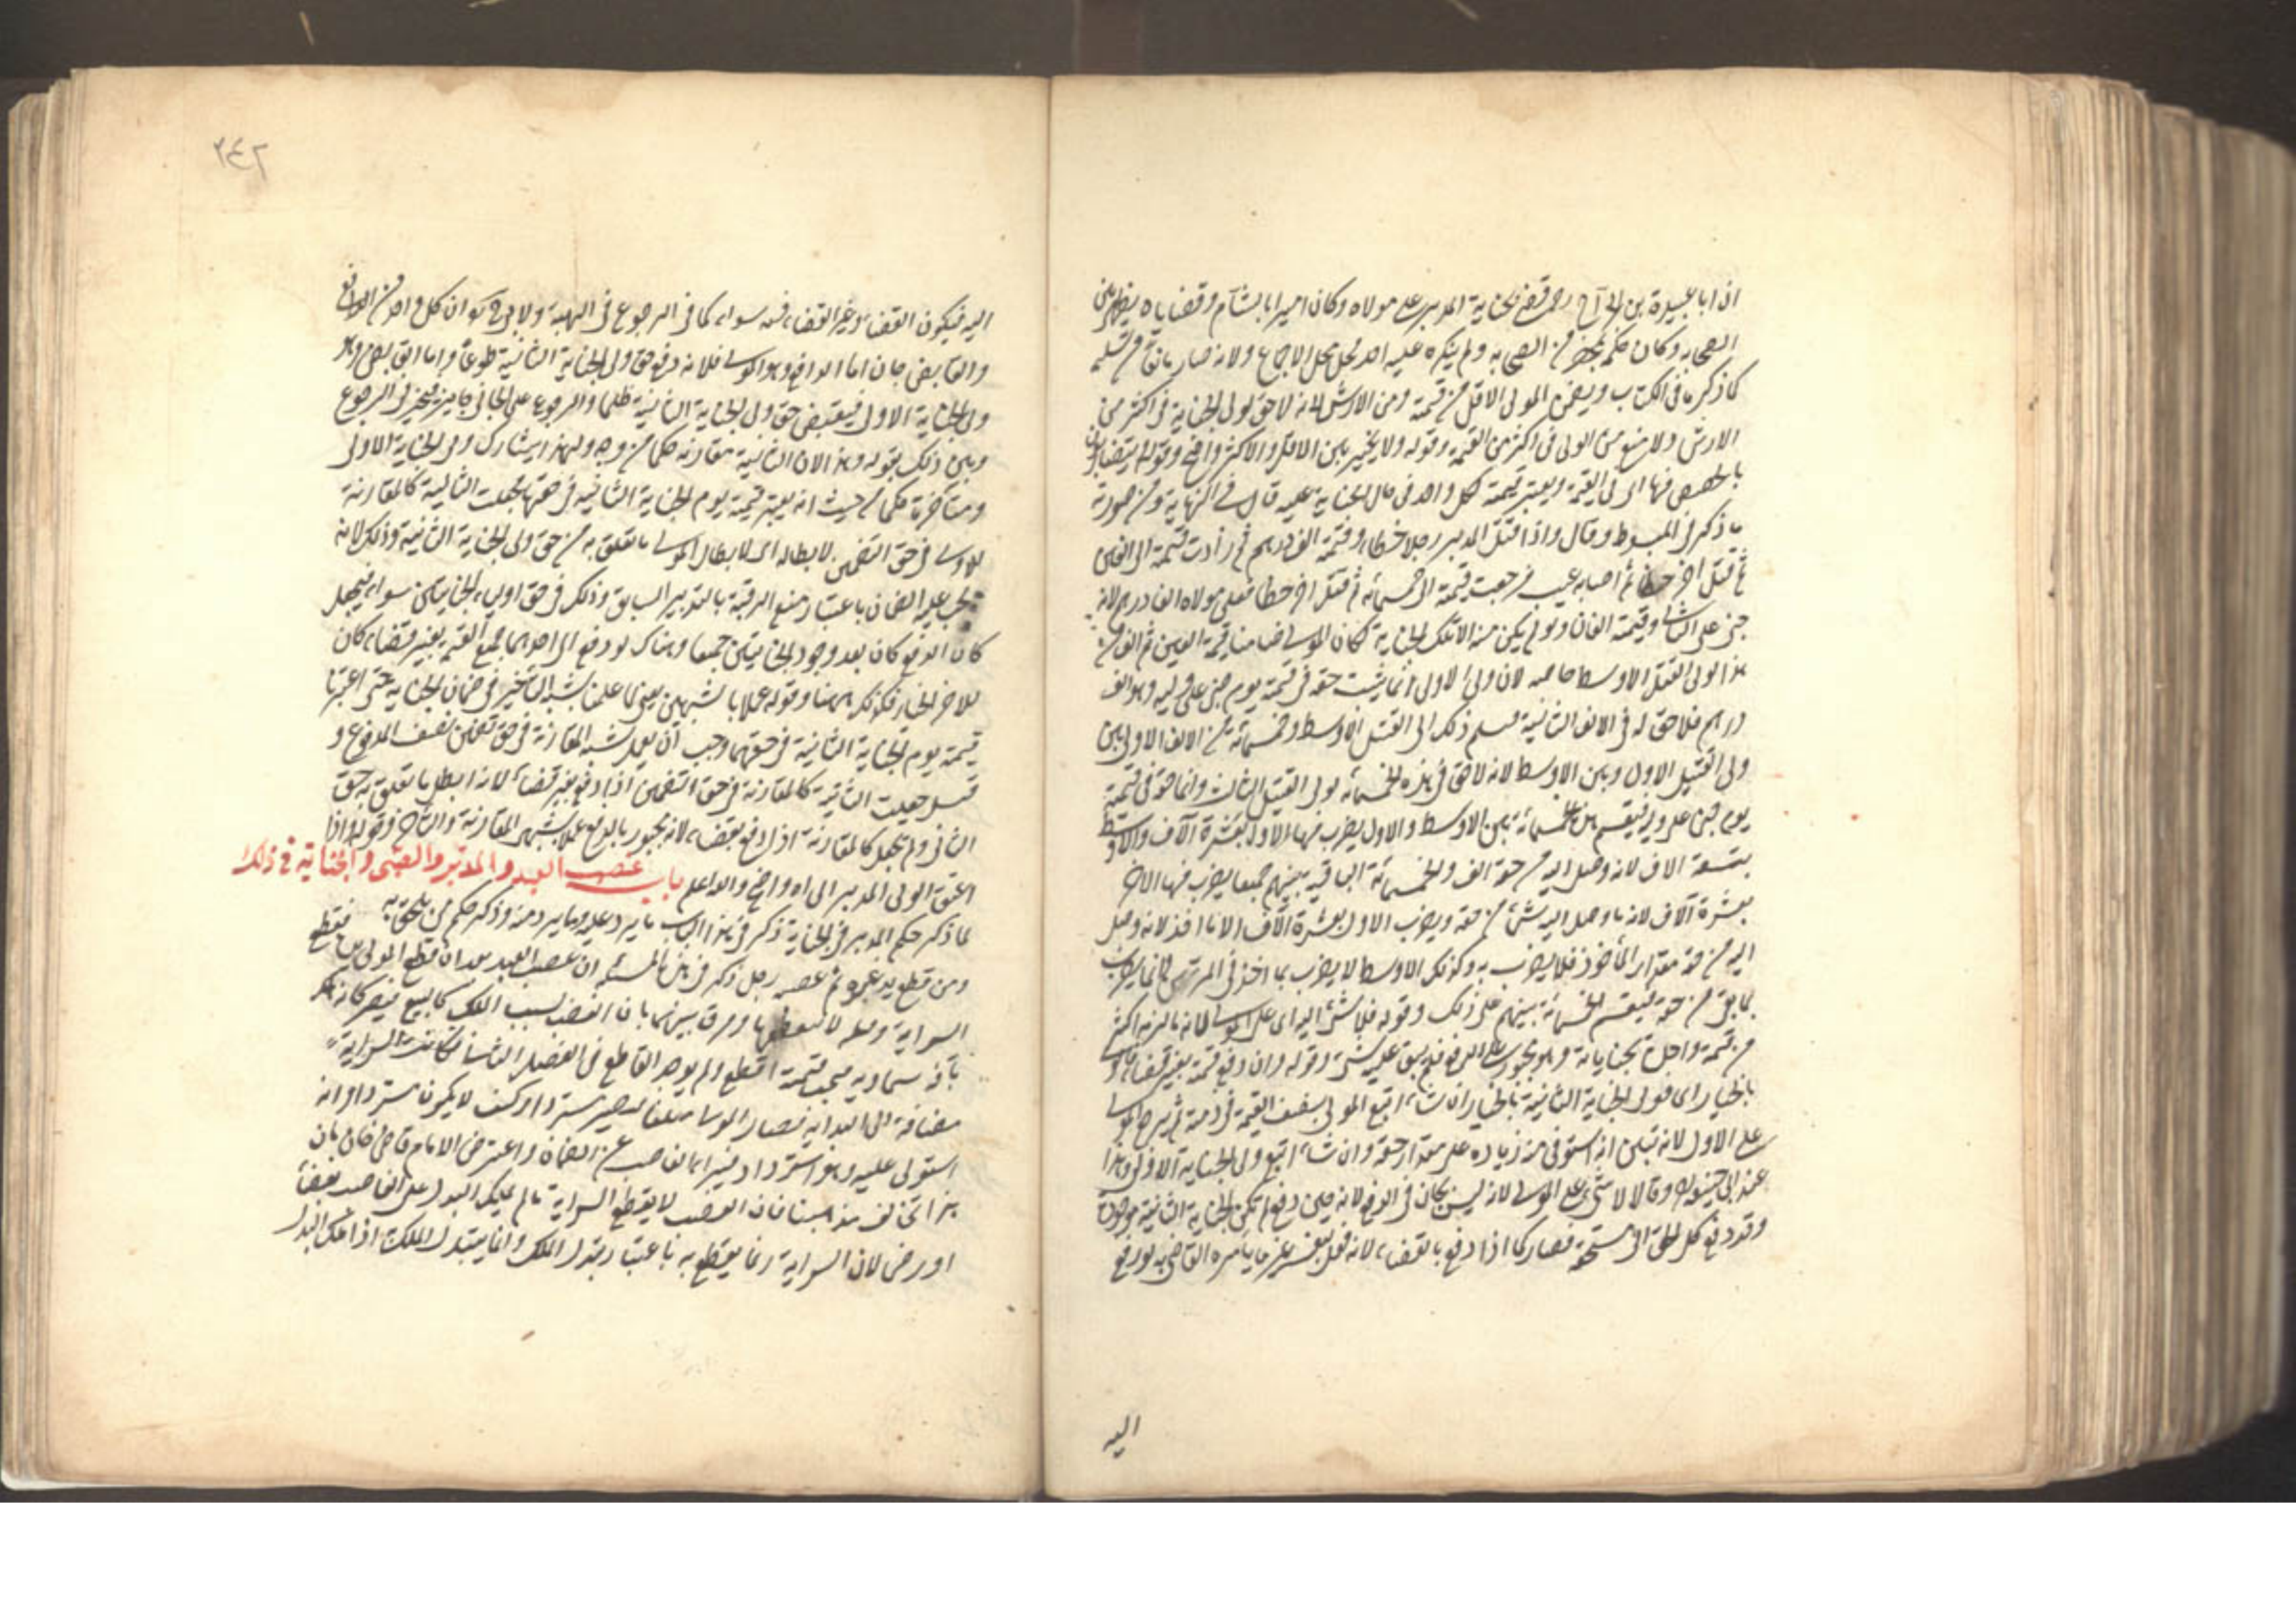 ان ابا عبيدة بن الجراح رضى قضى بجناية المدبر على مولاه وكان اميرا بالشام وقضاياه يظهر بين
الصحابة وكان حكمه بمحضر من الصحابة ولم ينكره عليه احد فحل محل الاجماع ولانه صار مانعا من تسليمه
كما ذكر ما فى الكتاب ويضمن المولى الاقل من قيمته ومن الارش لانه لا حق لولى الجناية فى اكثر من
الارش ولا منع من المولى فى اكثر من القيمة وقوله ولا يخير بين الاقل والاكثر واضح وقوله يتضاربون
بالحصص فيها اى فى القيمة ويعتبر قيمته لكل واحد فى حال الجناية عليه قال فى النهاية ومن صورته
ما ذكر فى المبسوط وقال واذا قتل المدبر رجلا خطاء وقيمته الف درهم ثم زادت قيمته الى الفين
ثم قتل اخر خطا ثم اصابه عيب فرجعت قيمته الى خمسمائة ثم قتل اخر خطا فعلى مولاه الفا درهم لانه
جنى على الثانى وقيمته الفان ولو لم يكن منه الا تلك الجناية لكان المولى ضامنا قيمة الفين ثم الف من
هذا لولى القتيل الاوسط خاصة لان ولى الاول انما يثبت حقه فى قيمته يوم جنى على وليه وهو الف
درهم فلا حق له فى الالف الثانية فيسلم ذلك الى القتيل الاوسط وخمسمائة من الالف الاولى بين
ولى القتيل الاول وبين الاوسط لانه لا حق فى هذه الخمسمائة لولى القتيل الثالث وانما حقه فى قيمته
يوم جنى على وليه فيقسم هذه الخمسمائة بين الاوسط والاول يضرب فيها الاول بعشرة آلاف والاوسط
بتسعة الاف لانه وصل اليه من حقه الف والخمسمائة الباقية بينهم جميعا يضرب فيها الاخر
بعشرة آلاف لانه ما وصل اليه شئ من حقه ويضرب الاول بعشرة آلاف الا ما اخذ لانه وصل
اليه من حقه مقدار المأخوذ فلا يضرب به وكذلك الاوسط لا يضرب بما اخذ فى المرتين وانما يضرب
بما بقى من حقه فيقسم الخمسمائة بينهم على ذلك وقوله فلا شئ اليه اى على المولى لانه ما لزمه اكثر
من قيمة واحدة بجناياته وهو مجبور على الدفع فلم يبق عليه شئ وقوله وان دفع قيمته بغير قضاء فالولى
بالخيار اى فولى الجناية الثانية بالخيار ان شاء اتبع المولى بنصف القيمة فى ذمته ثم يرجع المولى
على الاول لانه تبين انه استوفى منه زيادة على مقدار حقه وان شاء اتبع ولى الجناية الاولى وهذا
عند ابى حنيفة وقالا لا شئ على المولى لانه ليس بجان فى الدفع لانه حين دفع لم تكن الجناية الثانية موجودة
وقد دفع كل الحق الى مستحقه فصار كما اذا دفع بالقضاء لانه فعل بعين ما يأمره القاضى به لو رفع
اليه
٢٤٢
اليه فيكون القضاء وغير القضاء فيه سواء كما فى الرجوع فى الهبة ولابى حنيفة ان كل واحد من الدافع
والقابض جان اما الدافع وهو المولى فلانه دفع حق ولى الجناية الثانية طوعا واما القابض وهو
ولى الجناية الاولى فيقبض حق ولى الجناية الثانية ظلما والرجوع على الجانى جايز فيخير فى الرجوع
وبين ذلك بقوله وهذا لان الثانية مقارنة حكما من وجه ولهذا يشارك ولى الجناية الاولى
ومتأخرة حكما من حيث انه يعتبر قيمته يوم الجناية الثانية فى حقها فجعلت الثانية كالمقارنة
للاولى فى حق التضمين لابطاله اى لابطال المولى ما تعلق به من حق ولى الجناية الثانية وذلك لانه
يجب عليه الضمان باعتبار منع الرقبة بالتدبير السابق وذلك فى حق اولياء الجنايتين سواء فيجعل
كان الدفع كان بعد وجود الجنايتين جميعا وهناك لو دفع الى احدهما جميع القيمة بغير قضاء كان
للاخر الخيار فكذلك ههنا وقوله عملا بالشبهين يعنى لما عملنا بشبه التأخير فى ضمان الجناية حتى اعتبرنا
قيمته يوم الجناية الثانية فى حقهما وجب ان يعمل بشبه المقارنة فى حق تضمين نصف المدفوع و
قيل جعلت الثانية كالمقارنة فى حق التضمين اذا دفع بغير قضاء لانه ابطل ما تعلق به حق
الثانى ولم تجعل كالمقارنة اذا دفع بقضاء لانه مجبور بالدفع عملا بشبهى المقارنة والتأخر وقوله واذا
اعتق المولى المدبر الى اه واضح والله اعلم باب غصب العبد والمدبر والصبى والجناية فى ذلك
لما ذكر حكم المدبر فى الجناية ذكر فى هذا الباب ما يرد عليه وما يرد منه وذكر حكم من يلحق به
ومن قطع يد عبده ثم غصبه رجل ذكر فى هذه المسئلة ان غصب العبد بعد ان قطع المولى يده يقطع
السراية وقبله لا يقطعها وفرق بينهما بان الغصب سبب الملك كالبيع فيصير كانه هلك
بآفة سماوية فيجب قيمته اقطع ولم يوجد القاطع فى الفصل الثانى فكانت السراية
مضافة الى البداية فصار المولى متلفا فيصير مستردا وكيف لا يكون مستردا وانه
استولى عليه وهو استرداد فيبرأ الغاصب عن الضمان واعترض الامام قاضى خان بان
هذا يخالف مذهبنا فان الغصب لا يقطع السراية ما لم يملك البدل على الغاصب بقضاء
او رضى لان السراية انما يقطع به باعتبار تبدل الملك وانما يتبدل الملك اذا ملك البدل